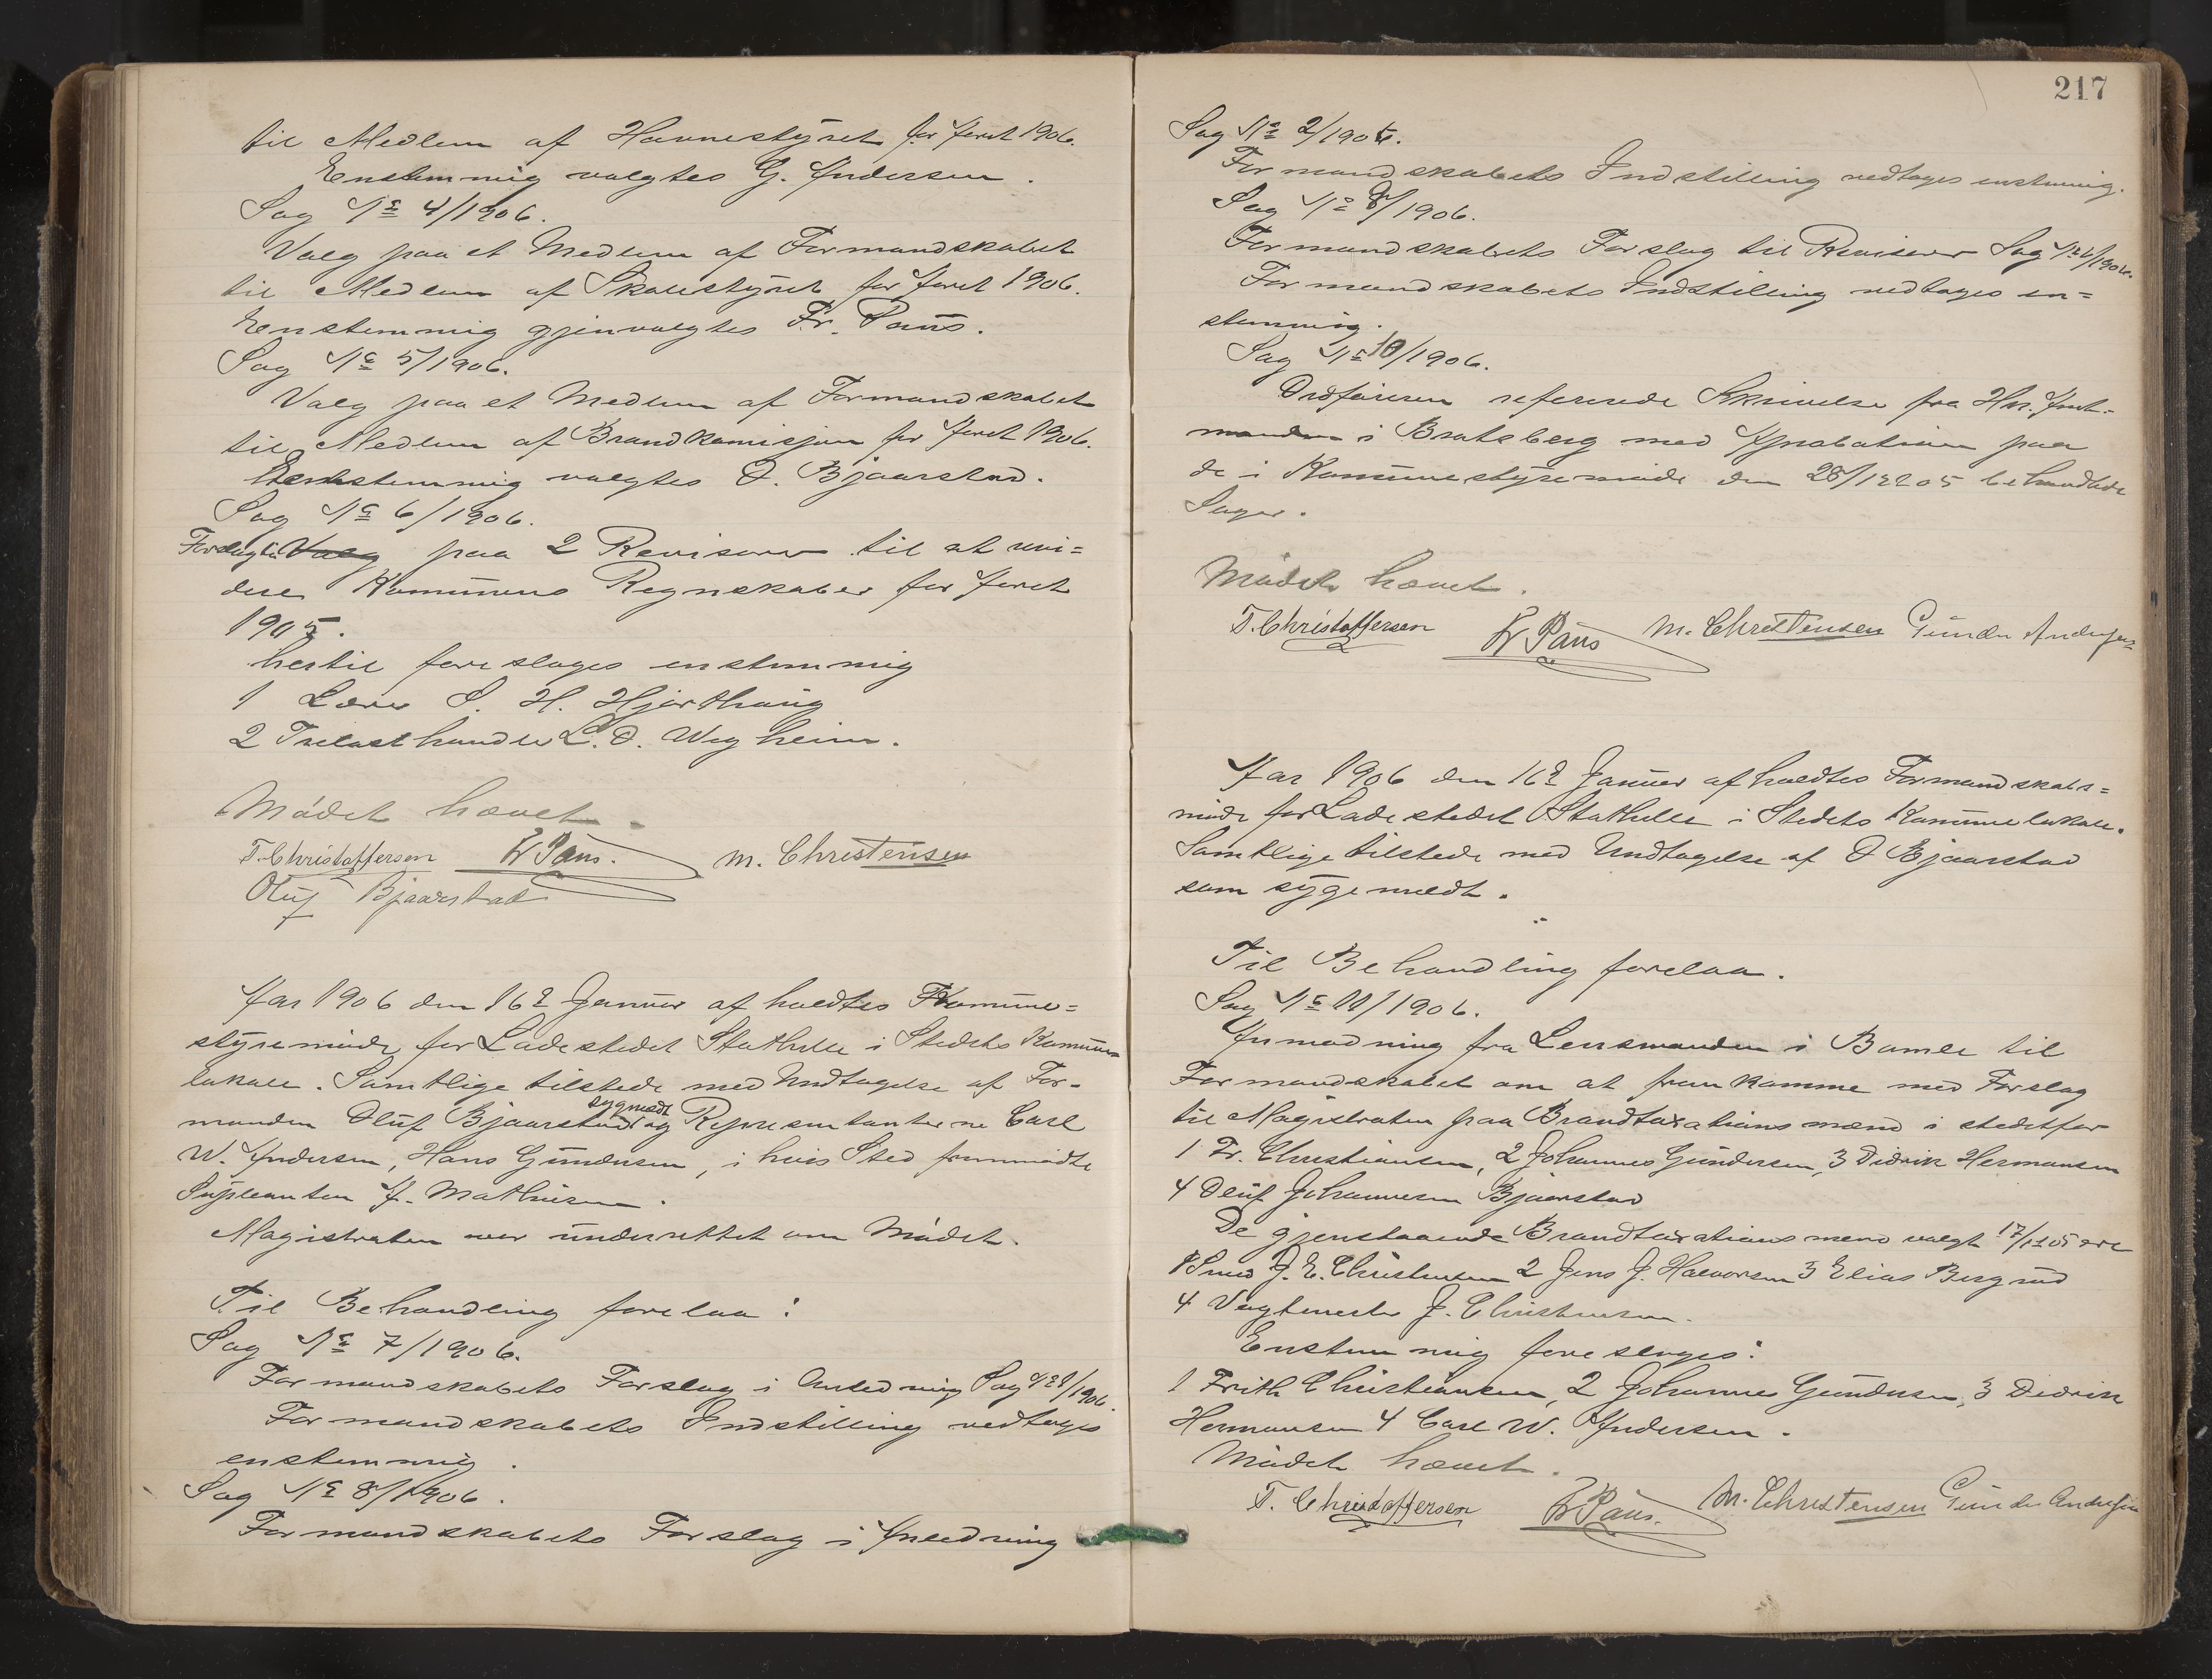 til Medlem af Havnestyret for Aaret 1906.
Enstemmig valgtes G. Andersen.
Sag No 4/1906.
Valg paa et Medlem af Formandskabet
til Medlem af Skolestyret for Aaret 1906.
Henstemmig gjenvalgtes Fr. Paus.
Sag No 5/1906.
Valg paa et Medlem af Formandskabet
til Medlem af Brandkomisjon for Aaret 1906.
Enstemmig valgtes O. Bjaarstad.
Sag No 6/1906.
Forslag til Valg paa 2 Revisorer til at revi=
dere Kommunens Regnskaber for Aaret
1905.
hertil foreslages enstemmig
1 Lærer S. H. Hjorthaug
2 Trelasthandler L. O. Wegheim.
Mødet hævet.
T. Christoffersen Fr Paus. M. Christensen
Oluf Bjaarstad
Aar 1906 den 16de Januar afholdtes Kommune=
styremøde for Ladestedet Stathelle i Stedets Kommune
lokale. Samtlige tilstede med Undtagelse af For-
manden Oluf Bjaarstad sygmeldt og Representanterne Carl
W. Andersen, Hans Gundersen, i hvis Sted fremmødte
Supleanten A. Mathisen.
Magistraten var underrettet om Mødet.
Til Behandling forelaa:
Sag No 7/1906.
Formandskabets Forslag i Anledning Sag No 1/1906.
Formandskabets Indstilling vedtoges
enstemmig.
Sag No 8/1906.
Formandskabets Forslag i Anledning
217
Sag No 2/1906.
Formandskabets Indstilling vedtoges enstemmig.
Sag No 9/1906.
Formandskabets Forslag til Revisorer Sag No 6/1906.
Formandskabets Indstilling vedtoges en=
stemmig.
Sag No 10/1906.
Ordføreren refererede Skrivelse fra Hr. Amt-
manden i Bratsberg med Aprobation paa
de i Kommunestyremøde den 28/12 05 behandlede
Sager.
Mødet hævet.
T. Christoffersen Fr Paus M. Christensen Gunder Andersen
Aar 1906 den 16de Januar afholdtes Formandskabs=
møde for Ladestedet Stathelle i Stedets Kommunelokale.
Samtlige tilstede med Undtagelse af O Bjaarstad
som sygemeldt.
Til Behandling forelaa.
Sag No 11/1906.
Anmodning fra Lensmanden i Bamle til
Formandskabet om at fremkomme med Forslag
til Magistraten paa Brandtaxationsmænd i stedetfor
1 Fr. Christiansen, 2 Johannes Gundersen, 3 Didrik Hermansen
4 Oluf Johannesen Bjaarstad
De gjenstaaende Brandtaxationsmænd valgt 17/11 05 ere
1 Smed J. E. Christensen 2 Jens J. Halvorsen 3 Elias Bergrud
4 Vagtmester J. Christensen.
Enstemmig foreslages:
1 Frith Christiansen, 2 Johannes Gundersen, 3 Didrik
Hermansen 4 Carl W. Andersen.
Mødet hævet.
T. Christoffersen Fr Paus. M. Christensen Gunder Andersen